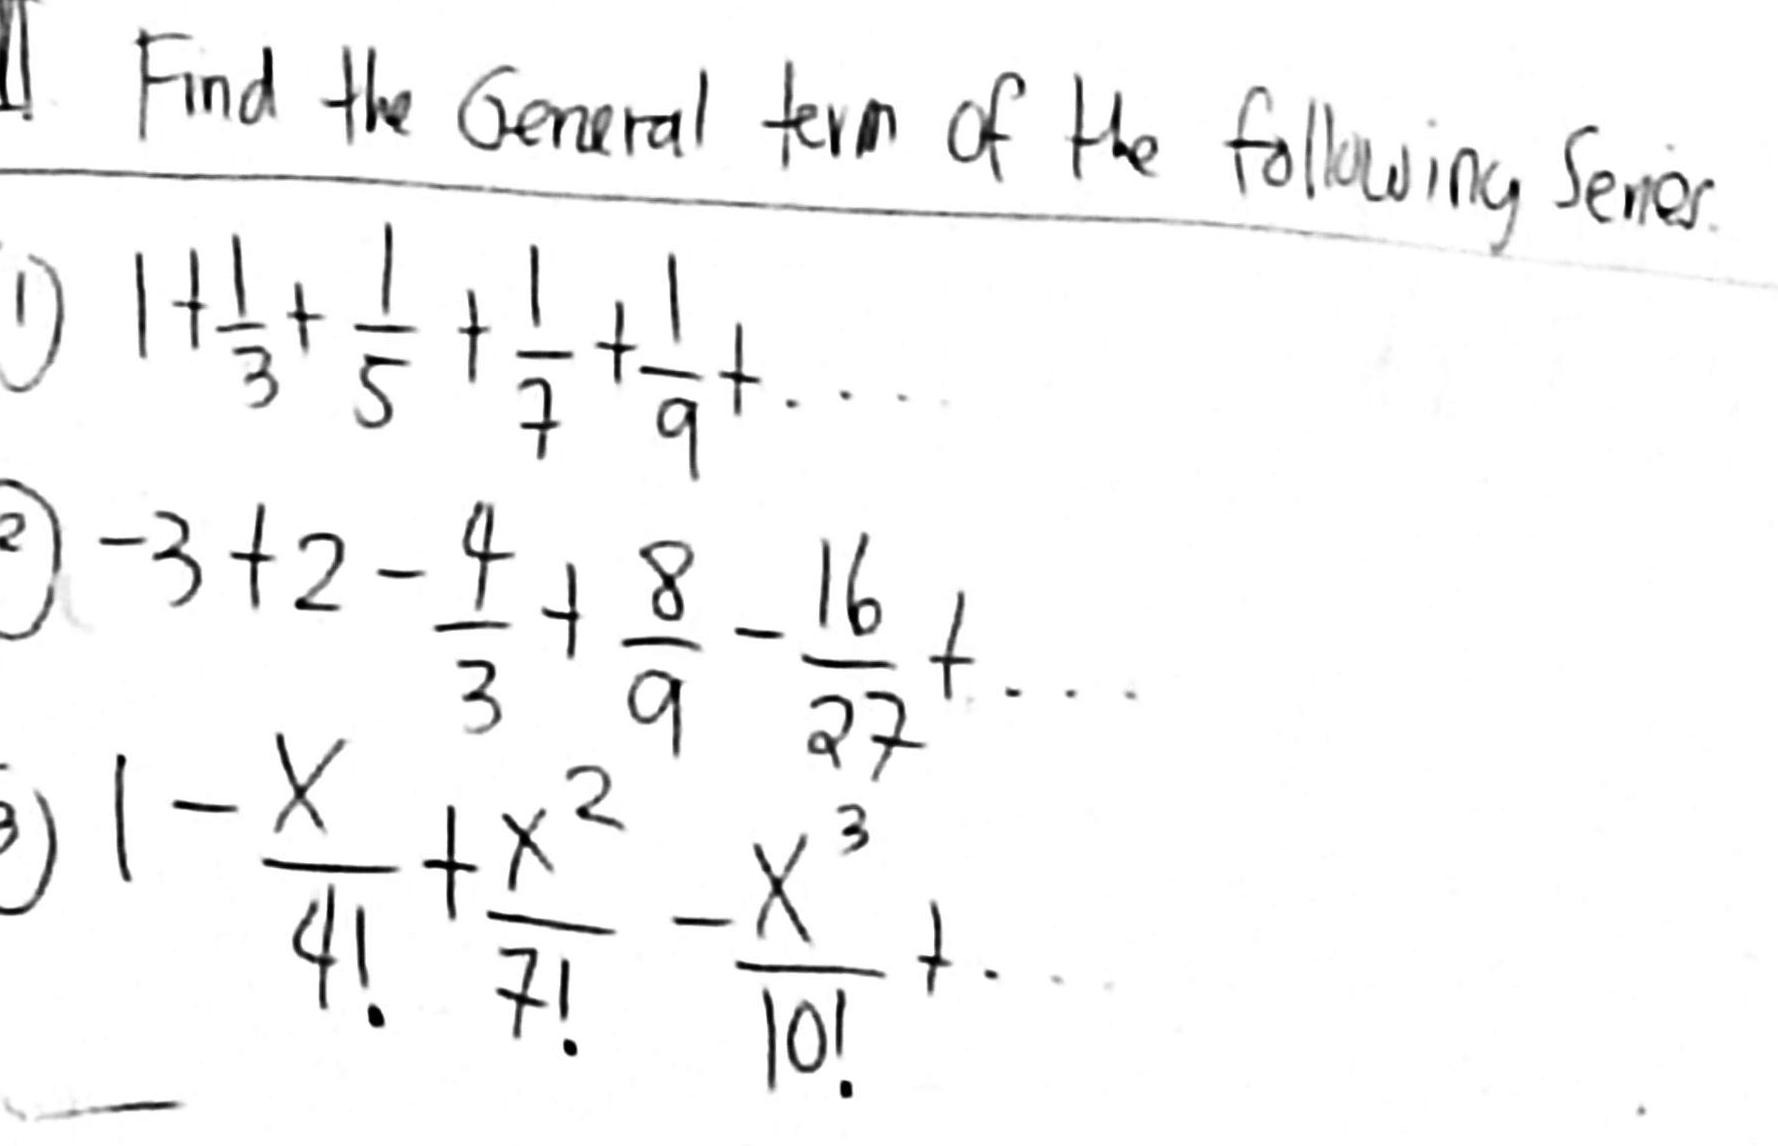 Find the General term of the following Series.
1) 1 + 1/3 + 1/5 + 1/7 + 1/9 + .....
2) -3 + 2 - 4/3 + 8/9 - 16/27 + ....
3) 1 - x/4! + x²/7! - x³/10! + ....